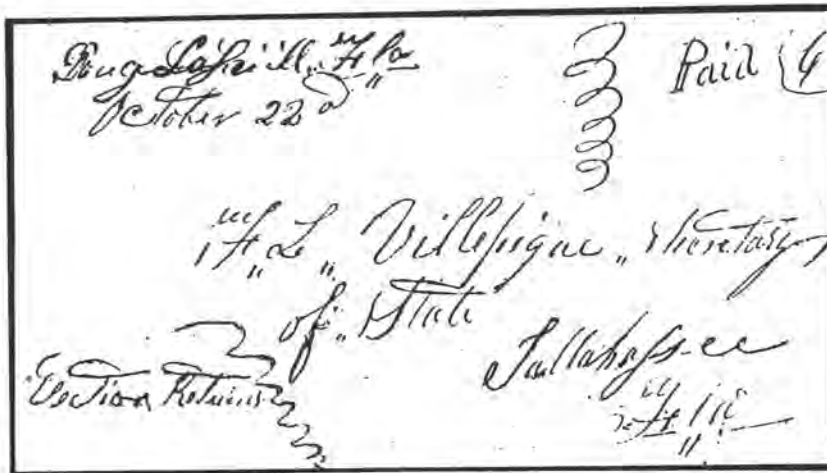 Douglasville, Fla
October 22d
Paid 6
F. L. Villepigue, Secretary
of State
Tallahassee
Fla
Election Returns